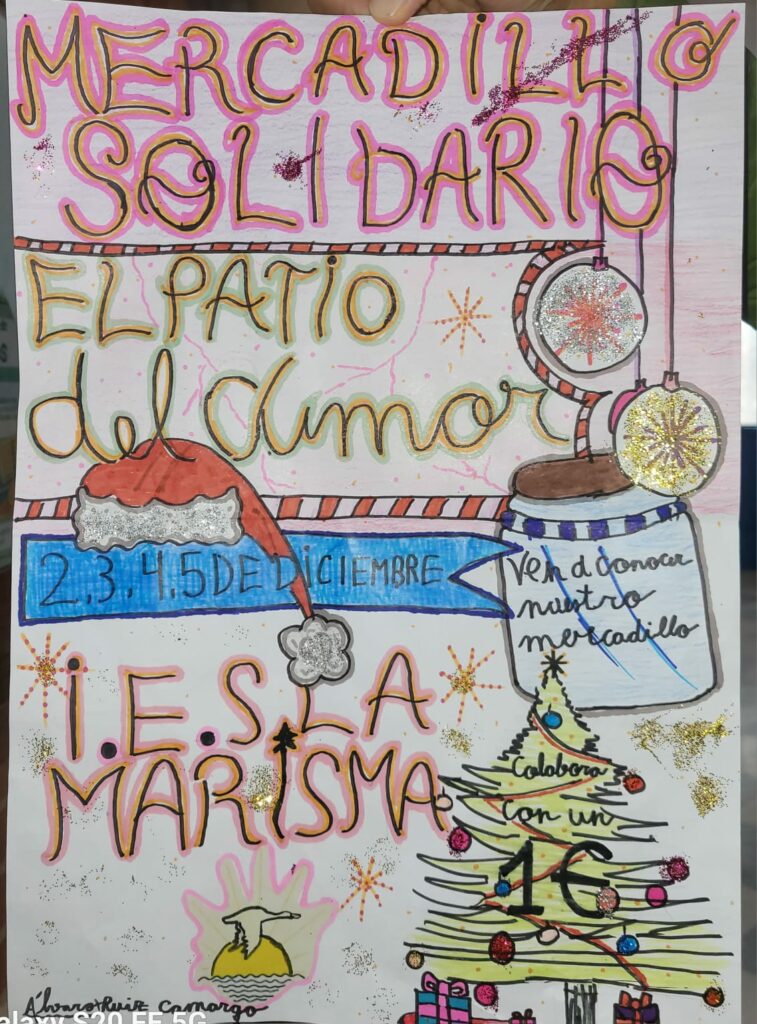 MERCADILLO
SOLIDARIO
EL PATIO
del Amor
2,3,4,5 DE DICIEMBRE
Ven a conocer
nuestro
mercadillo
I.E.S. LA
MARISMA
Colabora
con un
1€
Álvaro Ruiz Camargo
alaxy S20 FE 5G